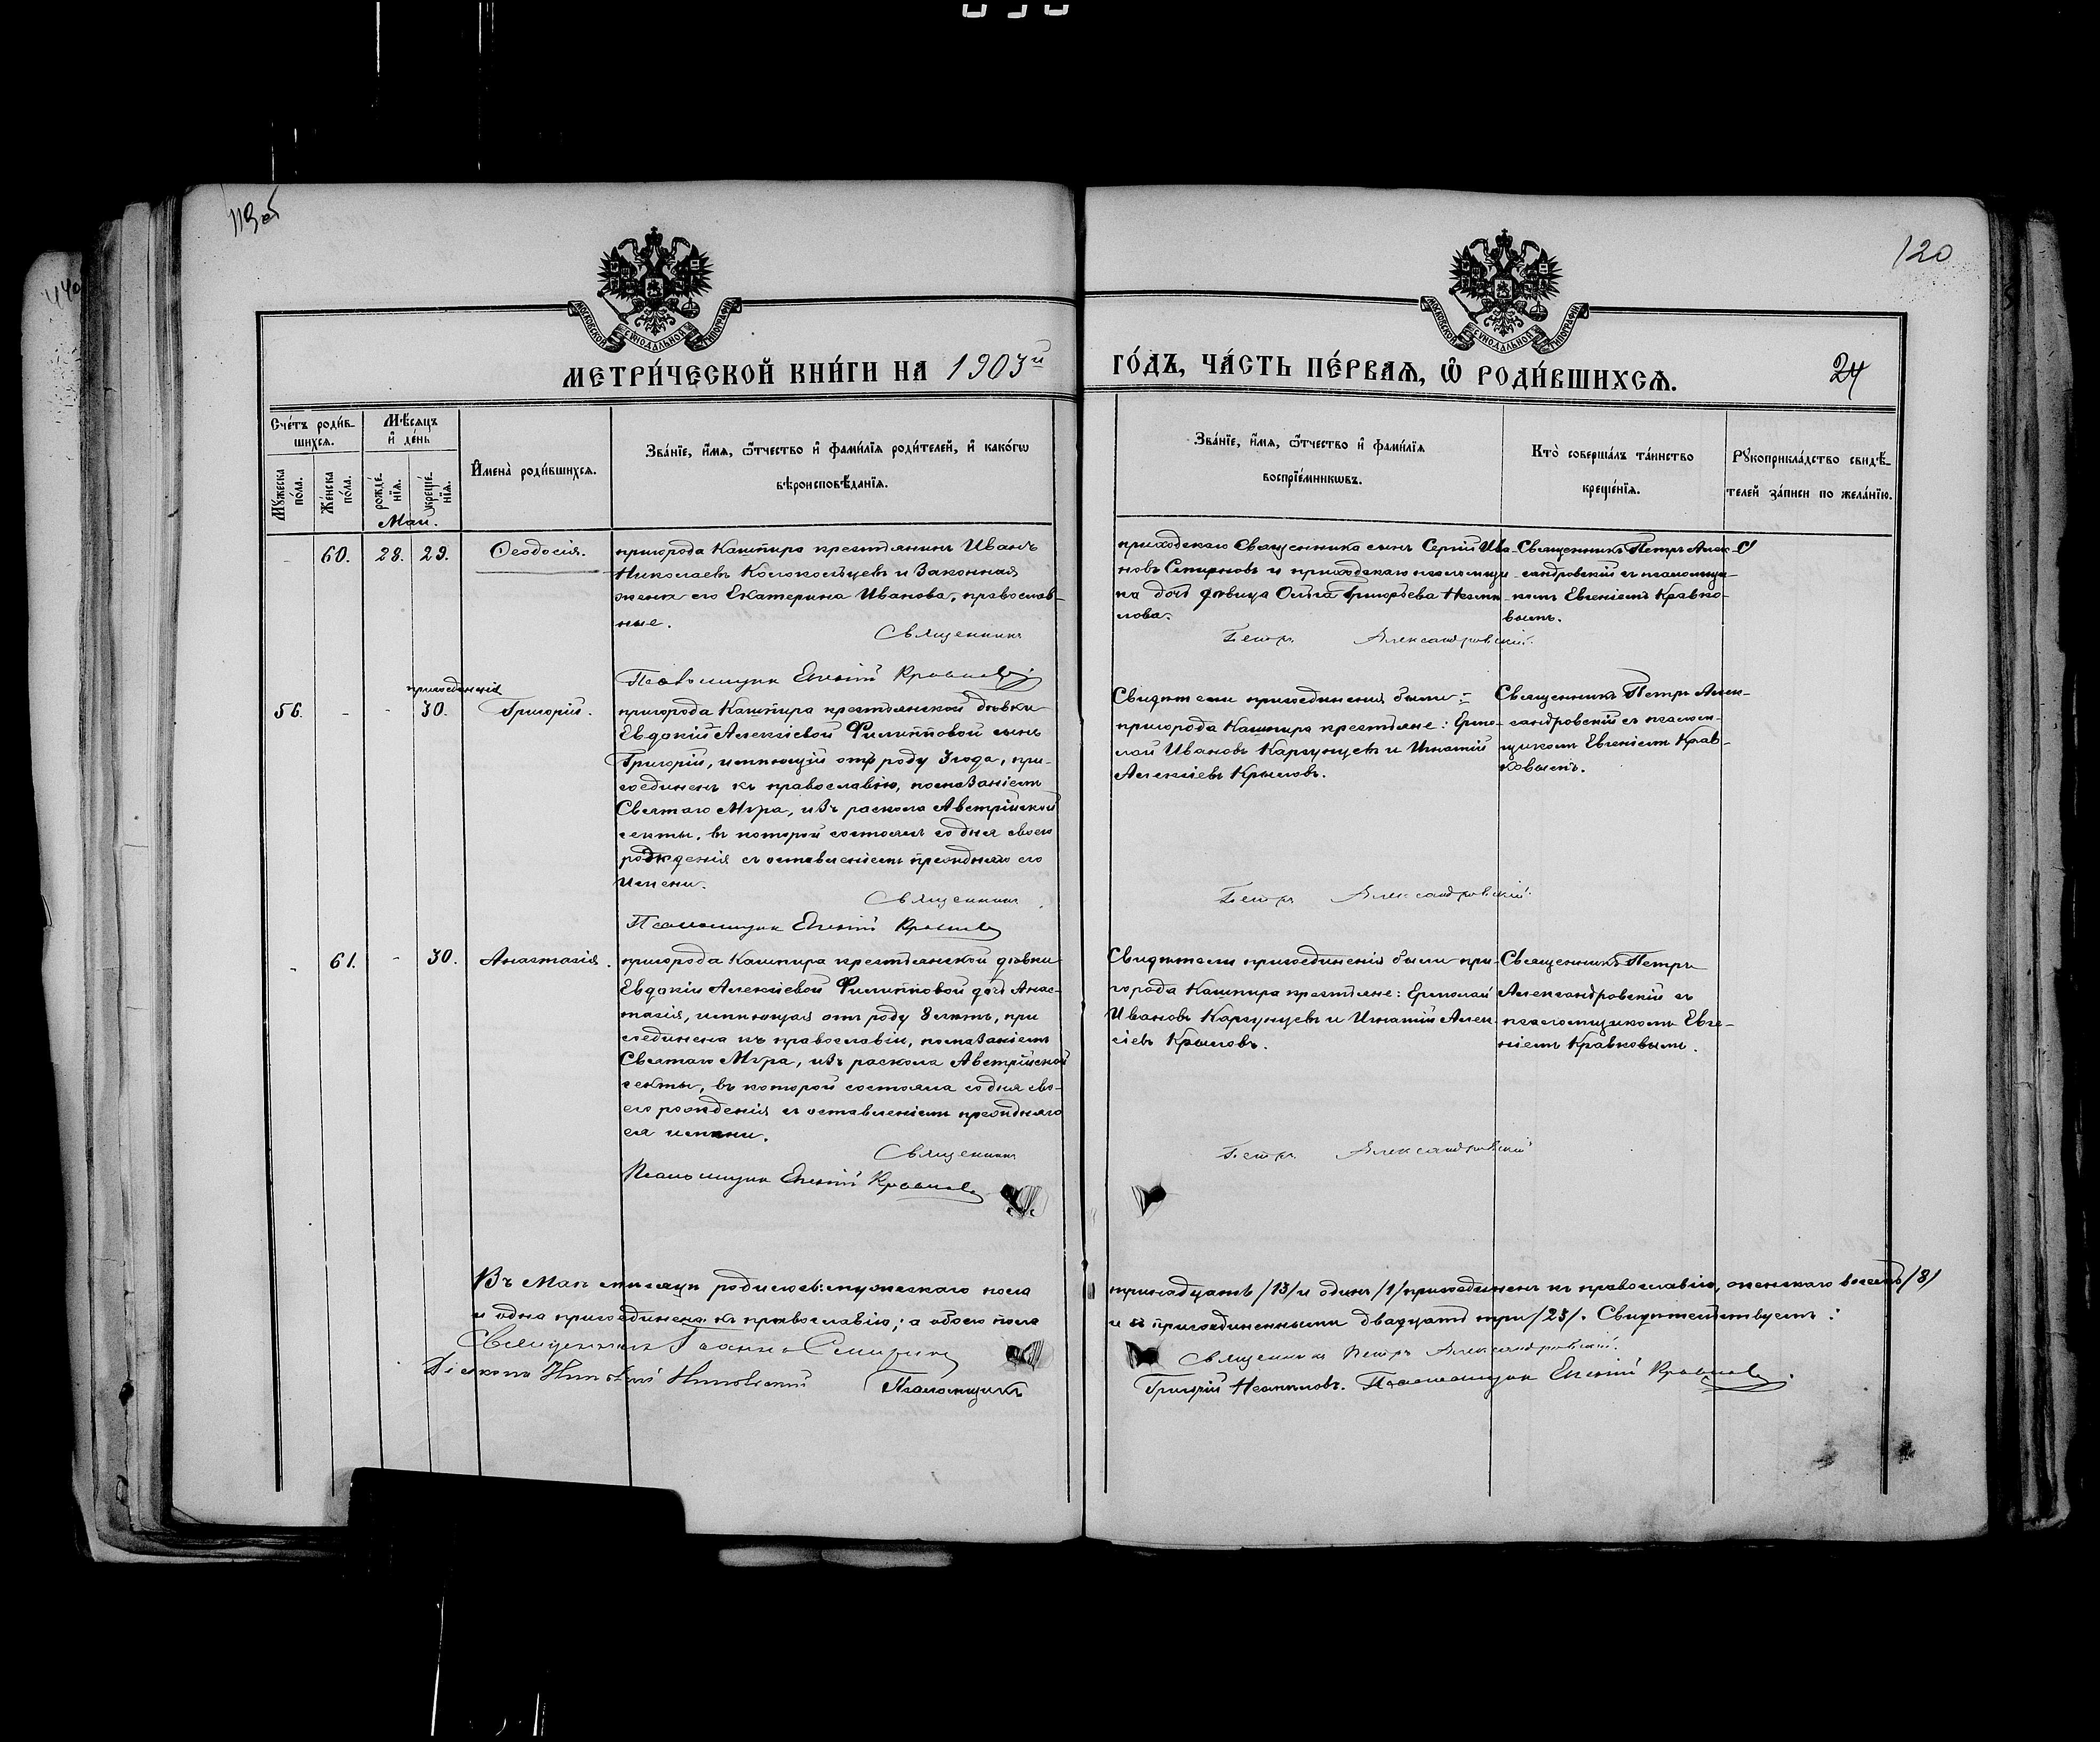 119об
120
МОСКОВСКОЙ СѴНОДАЛЬНОЙ ТИПОГРАФІИ
МОСКОВСКОЙ СѴНОДАЛЬНОЙ ТИПОГРАФІИ
МЕТРИ́ЧЕСКОЙ КНИ́ГИ НА 1903й
ГО́ДЪ, ЧА́СТЬ ПЕ́РВАѦ, Ѡ҆ РОДИ́ВШИХСѦ.
24
Сче́тъ роди́в-
шихсѧ.
Мꙋжеска по́ла.
Же́нска по́ла.
Мѣ́сѧцъ
и҆ де́нь
рожде́-
нїѧ.
креще́-
нїѧ.
И҆мена̀ роди́вшихсѧ.
Зва́нїе, и҆́мѧ, ѻ҆́тчество и҆ фами́лїѧ роди́телей, и҆ како́гѡ
вѣроисповѣ́данїѧ.
Зва́нїе, и҆́мѧ, ѻ҆́тчество и҆ фами́лїѧ
воспрїе́мникѡвъ.
Кто̀ соверша́лъ та́инство
креще́нїѧ.
Рꙋкоприкла́дство свидѣ́-
телей за́писи по жела́нїю.
Май.
- 60. 28. 29. Ѳеодосія.
пригорода Кашпира крестьянинъ Иванъ
Николаевъ Колокольцевъ и законная
жена его Екатерина Иванова, православ-
ные.
Священникъ
Псаломщик Евгений Кравков
приходскаго Священника сынъ Сергій Ива-
новъ Смирновъ и приходскаго псаломщи-
ка дочь дѣвица Ольга Григорьева
Священникъ Петръ Алек-
сандровскій съ псаломщи-
комъ Евгеніемъ Кравко-
вымъ.
Петръ Александровскій.
присоединенія
56. - - 30. Григорій.
пригорода Кашпира крестьянской дѣвки
Евдокіи Алексіевой Филипповой сынъ
Григорій, имѣющій отъ роду 3 года, при-
соединенъ къ православію, помазаніемъ
Святаго Мѵра, изъ раскола Австрійской
секты, въ которой состоялъ со дня своего
рожденія съ оставленіемъ прежняго его
имени.
Священникъ
Псаломщик Евгений Кравков
Свидѣтели присоединенія были:
пригорода Кашпира крестьяне: Ермо-
лай Ивановъ Каргунцевъ и Игнатій
Алексіевъ Крыловъ.
Священникъ Петръ Алек-
сандровскій съ псалом-
щикомъ Евгеніемъ Крав-
ковымъ.
Петръ Александровскій.
- 61. - 30. Анастасія.
пригорода Кашпира крестьянской дѣвки
Евдокіи Алексіевой Филипповой дочь Анас-
тасія, имѣющая отъ роду 8 лѣтъ, при
соединена къ православію, помазаніемъ
Святаго Мѵра, изъ раскола Австрійской
секты, въ которой состояла со дня сво-
его рожденія съ оставленіемъ прежняго
ея имени.
Священникъ
Псаломщик Евгений Кравков
Свидѣтели присоединенія были при-
города Кашпира крестьяне: Ермолай
Ивановъ Каргунцевъ и Игнатій Алек-
сіевъ Крыловъ.
Священникъ Петръ
Александровскій съ
псаломщикомъ Евге-
ніемъ Кравковымъ.
Петръ Александровскій
Въ Маѣ мѣсяцѣ родилось: мужескаго пола
тринадцать /13/ и одинъ /1/ присоединенъ къ православію, женскаго восемь /8/
и одна присоединена къ православію; а обоего пола
и съ присоединенными двадцать три /23/. Свидѣтельствуемъ:
Священникъ Іоаннъ Смирнов
Священникъ Петръ Александровскій.
Діаконъ Псаломщикъ
Григорій Псаломщик Евгений Кравков.